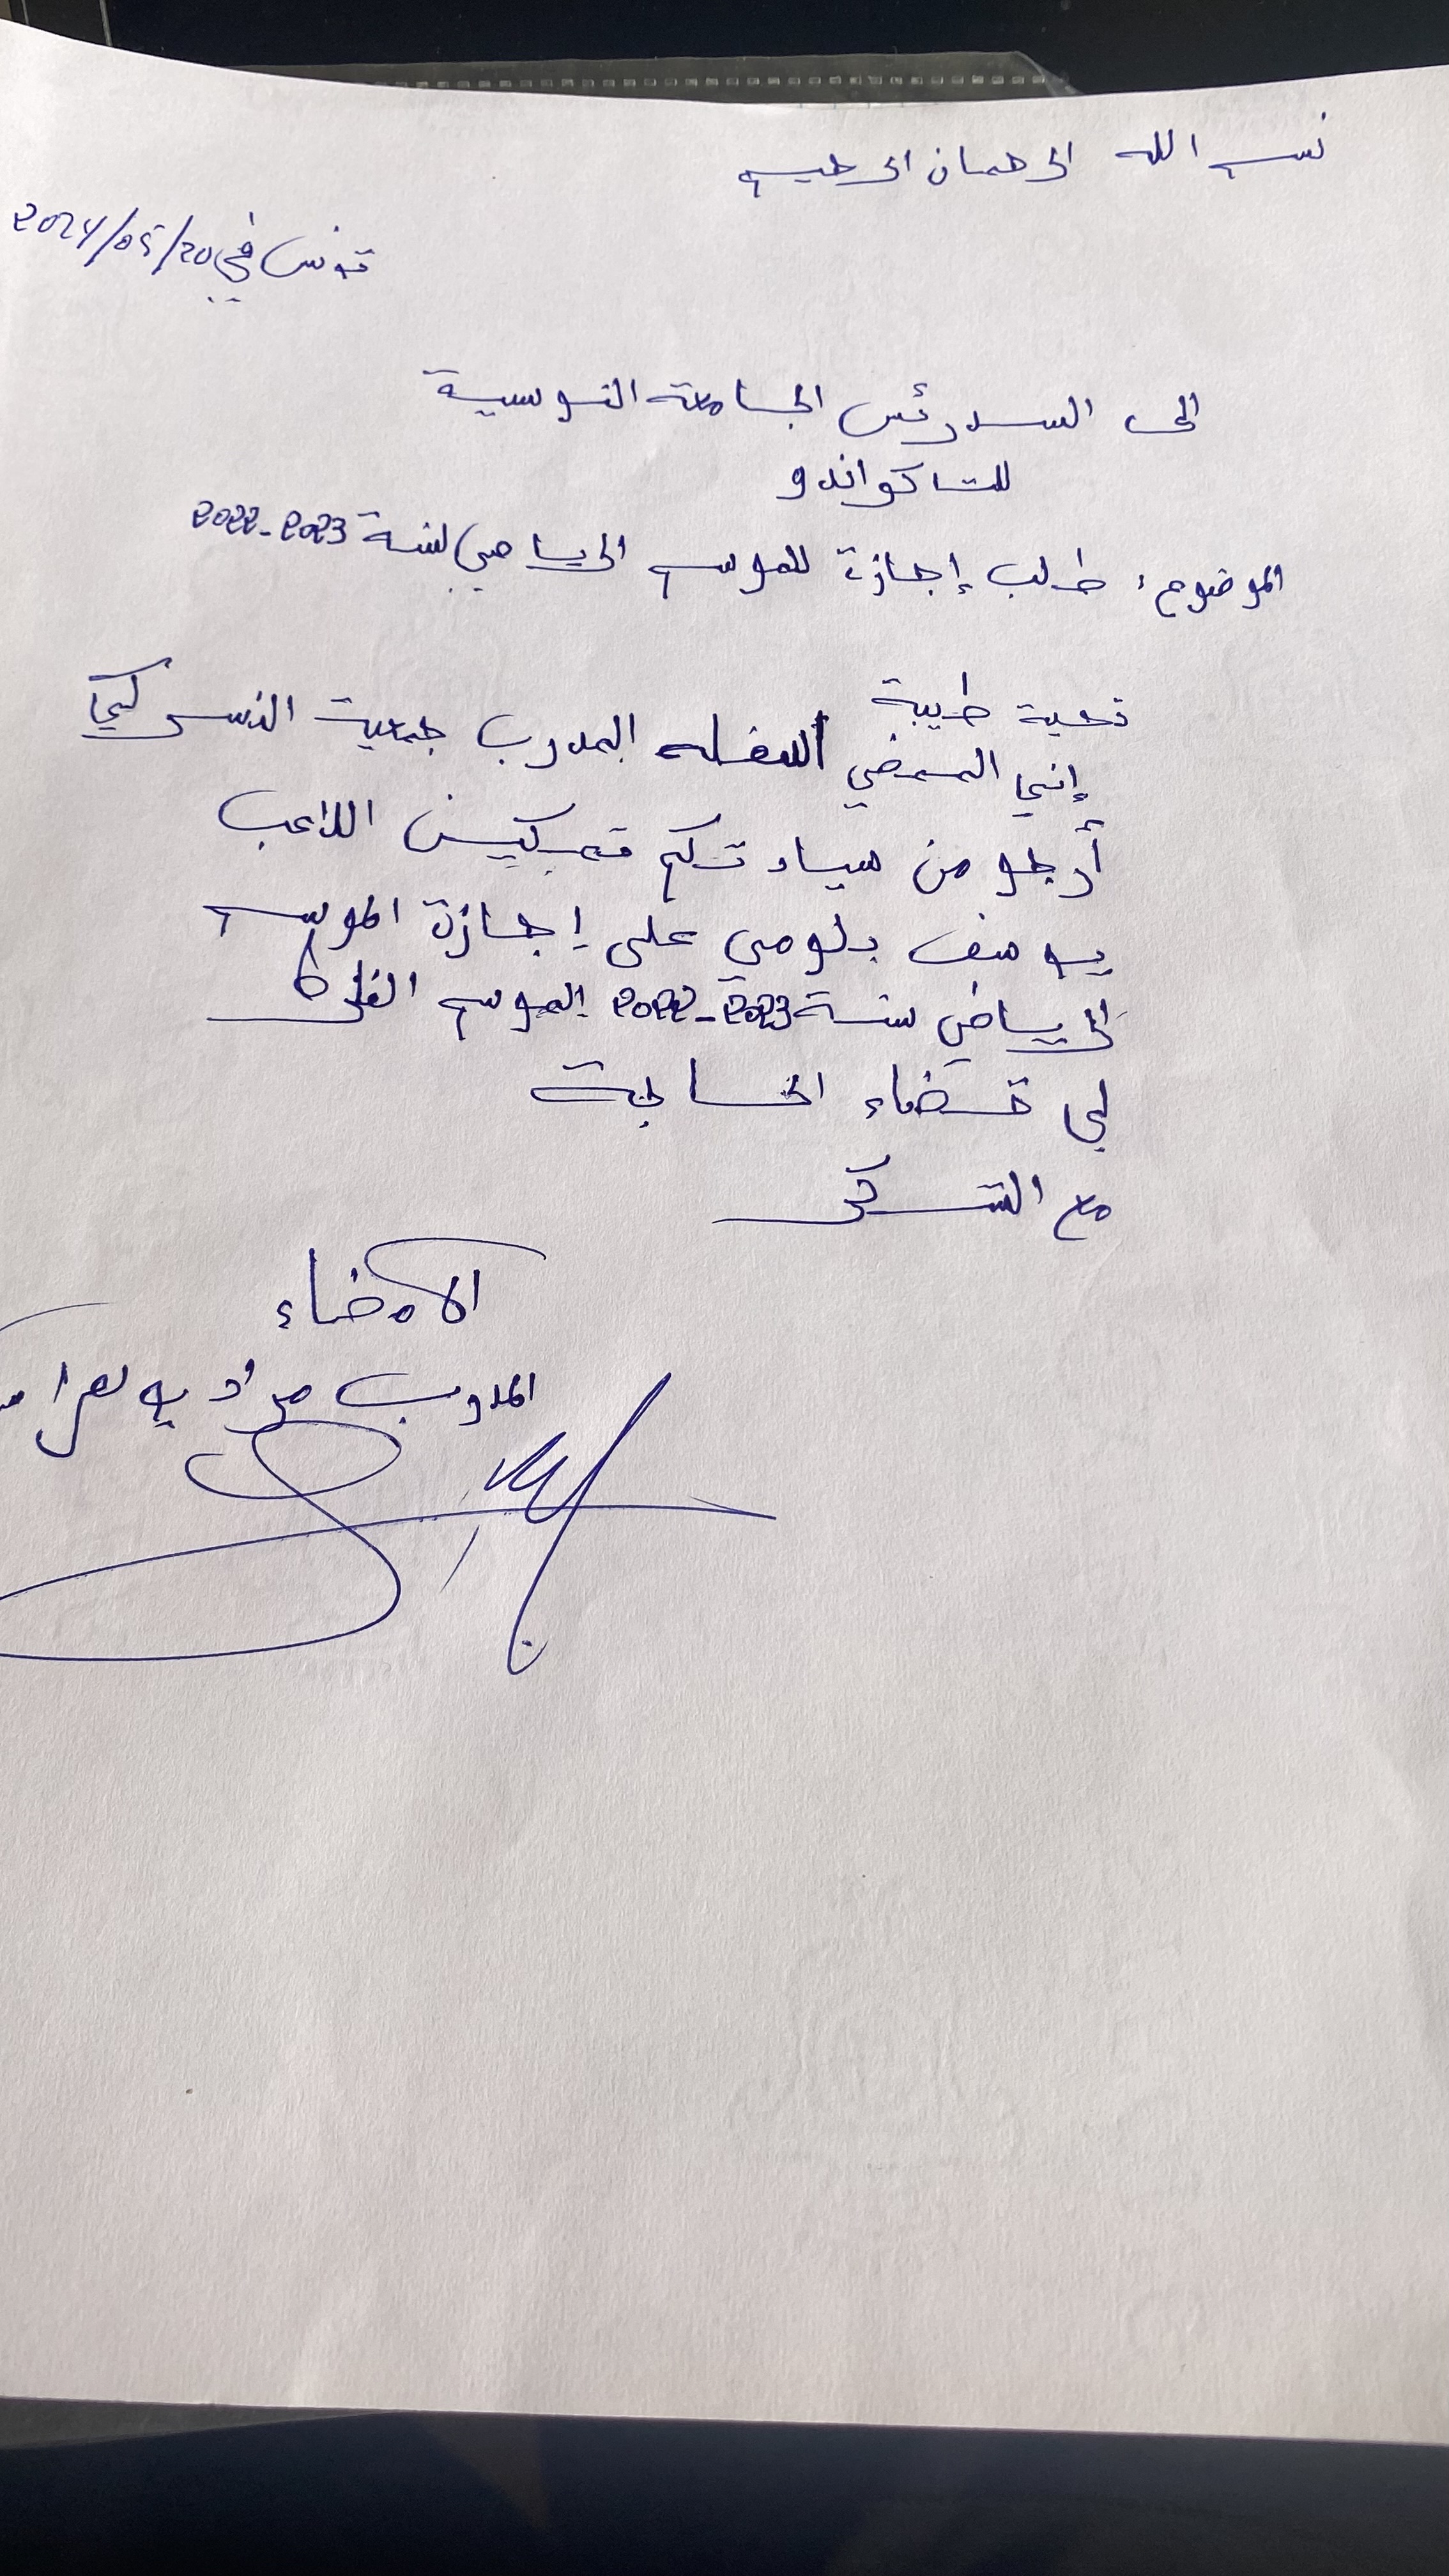 بسم الله الرحمان الرحيم
تونس في 2024/05/20
الى السيد رئس الجامعة التونسية
للتاكواندو
الموضوع: طلب إجازة للموسم الرياضي لسنة 2023-2022
تحية طيبة
إني الممضي أسفله المدرب جمعية النسر
أرجو من سيادتكم تمكين اللاعب
يوسف بلومي على إجازة الموسم
الرياضي سنة 2023-2022 الموسم الفارط
لي قضاء الحاجة
مع الشكر
الامضاء
المدرب مراد